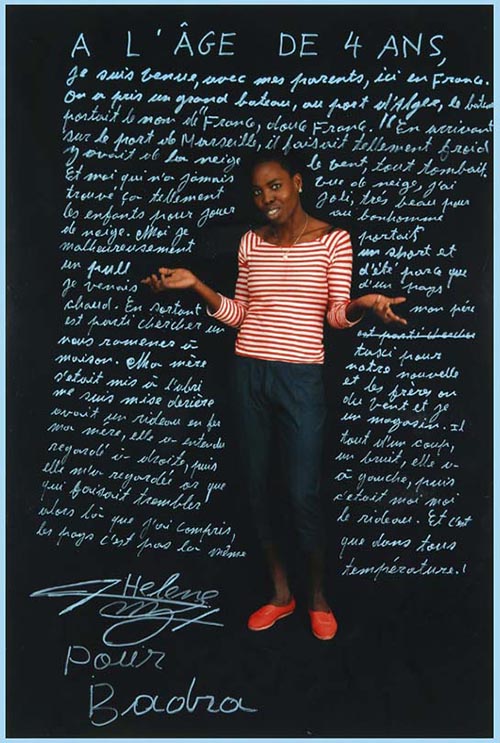 A L'ÂGE DE 4 ANS,
Je suis venue, avec mes parents, ici en France.
On a pris un grand bateau, au port d'Alger, le bateau
portait le nom de "France, douce France." En arrivant
sur le port de Marseille, il faisait tellement froid
y avait de la neige le vent, tout tombait.
Et moi qui n'a jamais vue de neige, j'ai
trouvé ça tellement joli, très beau pour
les enfants pour jouer au bonhomme
de neige. Moi je portait
malheureusement un short et
un pull d'été parce que
je venais d'un pays
chaud. En sortant mon père
est parti chercher un est parti chercher
nous ramener à taxi pour
maison. Ma mère notre nouvelle
s'était mis à l'abri et les frères ou
me suis mise derière du vent et je
avait un rideau en fer un magasin. Il
ma mère, elle a entendu tout d'un coup,
regardé à droite, puis un bruit, elle a
elle m'a regardé or que à gauche, puis
qui faisait trembler c'était moi moi
alors là que j'ai compris, le rideau. Et c'est
les pays c'est pas la même que dans tous
température.!
Helene
pour
Badra